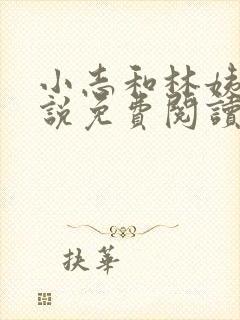 小志和林姨
說免費閱讀
扶華